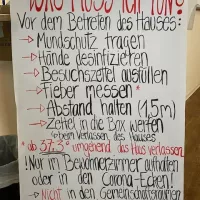 Was muss ich tun?
Vor dem Betreten des Hauses:
→ Mundschutz tragen
→ Hände desinfizieren
→ Besuchszettel ausfüllen
→ Fieber messen*
→ Abstand halten (1,5m)
→ Zettel in die Box werfen
beim Verlassen des Hauses
* ab 37,3° umgehend das Haus verlassen
!Nur im Bewohnerzimmer aufhalten
oder in den Corona-Ecken!
→ Nicht in den Gemeinschaftsräumen